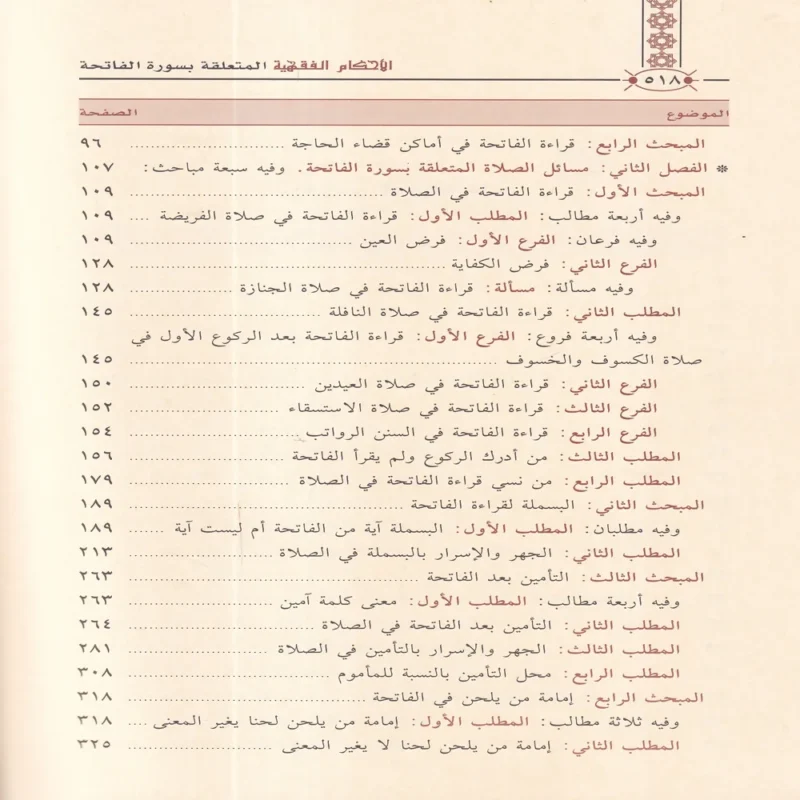 الأحكام الفقهية المتعلقة بسورة الفاتحة
٥١٨
الموضوع الصفحة
المبحث الرابع: قراءة الفاتحة في أماكن قضاء الحاجة ........................ ٩٦
* الفصل الثاني: مسائل الصلاة المتعلقة بسورة الفاتحة. وفيه سبعة مباحث: ١٠٧
المبحث الأول: قراءة الفاتحة في الصلاة ........................ ١٠٩
وفيه أربعة مطالب: المطلب الأول: قراءة الفاتحة في صلاة الفريضة .... ١٠٩
وفيه فرعان: الفرع الأول: فرض العين ........................ ١٠٩
الفرع الثاني: فرض الكفاية ........................ ١٢٨
وفيه مسألة: مسألة: قراءة الفاتحة في صلاة الجنازة ................ ١٢٨
المطلب الثاني: قراءة الفاتحة في صلاة النافلة ........................ ١٤٥
وفيه أربعة فروع: الفرع الأول: قراءة الفاتحة بعد الركوع الأول في
صلاة الكسوف والخسوف ........................ ١٤٥
الفرع الثاني: قراءة الفاتحة في صلاة العيدين ........................ ١٥٠
الفرع الثالث: قراءة الفاتحة في صلاة الاستسقاء ........................ ١٥٢
الفرع الرابع: قراءة الفاتحة في السنن الرواتب ........................ ١٥٤
المطلب الثالث: من أدرك الركوع ولم يقرأ الفاتحة ........................ ١٥٦
المطلب الرابع: من نسي قراءة الفاتحة في الصلاة ........................ ١٧٩
المبحث الثاني: البسملة لقراءة الفاتحة ........................ ١٨٩
وفيه مطلبان: المطلب الأول: البسملة آية من الفاتحة أم ليست آية ....... ١٨٩
المطلب الثاني: الجهر والإسرار بالبسملة في الصلاة ........................ ٢١٣
المبحث الثالث: التأمين بعد الفاتحة ........................ ٢٦٣
وفيه أربعة مطالب: المطلب الأول: معنى كلمة آمين ........................ ٢٦٣
المطلب الثاني: التأمين بعد الفاتحة في الصلاة ........................ ٢٦٤
المطلب الثالث: الجهر والإسرار بالتأمين في الصلاة ........................ ٢٨١
المطلب الرابع: محل التأمين بالنسبة للمأموم ........................ ٣٠٨
المبحث الرابع: إمامة من يلحن في الفاتحة ........................ ٣١٨
وفيه ثلاثة مطالب: المطلب الأول: إمامة من يلحن لحنا يغير المعنى .... ٣١٨
المطلب الثاني: إمامة من يلحن لحنا لا يغير المعنى ........................ ٣٢٥